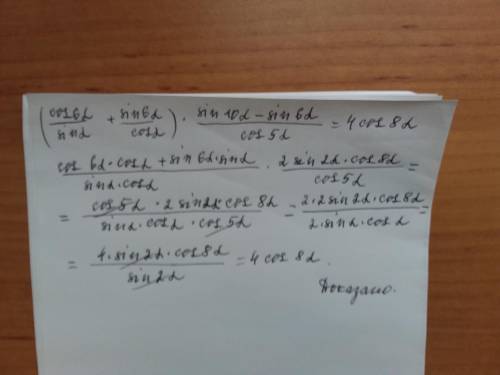 (cos6α/sinα + sin6α/cosα) · (sin10α − sin6α)/cos5α = 4cos8α
(cos6α·cosα + sin6α·sinα)/(sinα·cosα) · (2sin2α·cos8α)/cos5α =
= (cos5α · 2sin2α·cos8α)/(sinα·cosα·cos5α) = (2·2sin2α·cos8α)/(2·sinα·cosα) =
= (4·sin2α·cos8α)/sin2α = 4cos8α.
Доказано.